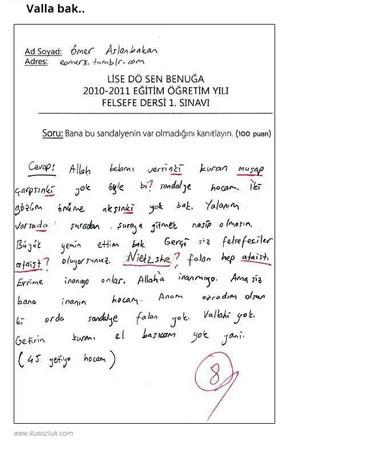 Valla bak..
Ad Soyad: Ömer Aslanbakan
Adres: eomerx.tumblr.com
LİSE DÖ SEN BENUĞA
2010-2011 EĞİTİM ÖĞRETİM YILI
FELSEFE DERSİ 1. SINAVI
Soru: Bana bu sandalyenin var olmadığını kanıtlayın. (100 puan)
Cevap: Allah belamı versinki kuran muşap
çarpsınki yok öyle bi? sandalye hocam. İki
gözüm önüme akşınki yok bak. Yalanım
varsada şuradan şuraya gitmek nasip olmasın.
Büyük yemin ettim bak Gerçi siz felsefeciler
ataist? oluyorsunuz. Nietzshe? falan hep ataist.
Evrime inanıyo onlar. Allah'a inanmıyo. Ama siz
bana inanın hocam. Anam avradım olsun
ki orda sandalye falan yok. Vallahi yok.
Getirin kuranı el basıcam yok yani.
(45 yetiyo hocam)
8
www.itusozluk.com